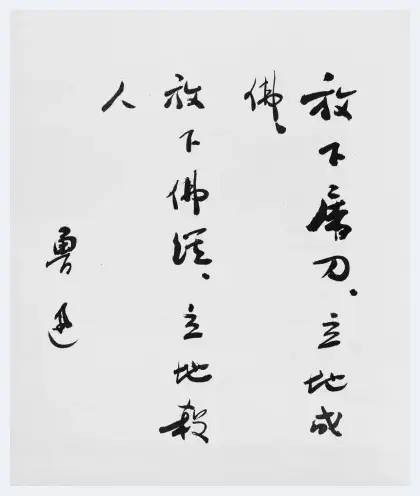 放下屠刀、立地成
佛、
放下佛經、立地殺
人
魯迅